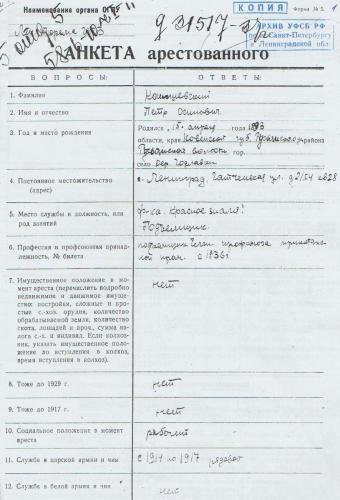 Наименование органа ОГПУ
Д 31517
КОПИЯ Форма № 5
АРХИВ УФСБ РФ
по Санкт-Петербургу
и Ленинградской обл.
АНКЕТА арестованного
ВОПРОСЫ: ОТВЕТЫ:
1. Фамилия
2. Имя и отчество Петр Осипович
3. Год и место рождения Родился 15 года 1893
области, край Ковенской губ. района
волости гор.
село дер.
4. Постоянное местожительство 1. Ленинград, Гатчинская ул. д 2/54 кв 28
(адрес)
5. Место службы и должность, или ф-ка „Красное знамя“
род занятий
6. Профессия и профсоюзная принад- член профсоюза
лежность, № билета
7. Имущественное положение в мо- нет
мент ареста (перечислить подробно
недвижимое и движимое имущес-
тво: постройки, сложные и про-
стые с.-хоз. орудия, количество
обрабатываемой земли, количество
скота, лошадей и проч., сумма на-
лога с.-х. и индивид. Если колхоз-
ник, указать имущественное поло-
жение до вступления в колхоз,
время вступления в колхоз)
8. Тоже до 1929 г. нет
9. Тоже до 1917 г. нет
10. Социальное положение в момент рабочий
ареста
11. Служба в царской армии и чин с 1914 по 1917 рядовой
12. Служба в белой армии и чин нет